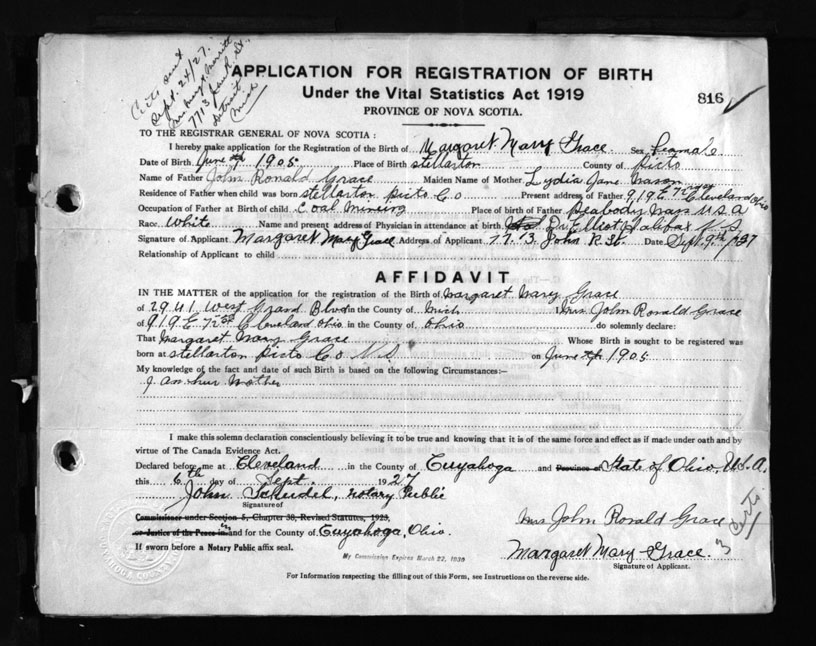 Sept. 24/27.
7713 John R. St.
Detroit
Mich
APPLICATION FOR REGISTRATION OF BIRTH
Under the Vital Statistics Act 1919
816
PROVINCE OF NOVA SCOTIA.
TO THE REGISTRAR GENERAL OF NOVA SCOTIA :
I hereby make application for the Registration of the Birth of Margaret Mary Grace Sex Feamale
Date of Birth June 1905 Place of Birth stellarton County of Picto
Name of Father John Ronald Grace Maiden Name of Mother Lydia Jane Mason
Residence of Father when child was born stellarton picto Co Present address of Father 919 E 72 Cleveland Ohio
Occupation of Father at Birth of child Coal Mining Place of birth of Father Peabody Mass U S A
Race White Name and present address of Physician in attendance at birth Dr Elliot Halifax N S
Signature of Applicant Margaret Mary Grace Address of Applicant 77.13 John R St. Date Sept. 9th
Relationship of Applicant to child
AFFIDAVIT
IN THE MATTER of the application for the registration of the Birth of Margaret Mary Grace
of 2941 West Grand Blvd in the County of Mich I, Mrs John Ronald Grace
of 919 E 72nd Cleveland Ohio in the County of Ohio do solemnly declare:
That Margaret Mary Grace Whose Birth is sought to be registered was
born at stellarton Picto Co N S on June 1905
My knowledge of the fact and date of such Birth is based on the following Circumstances:—
I am hur Mother
I make this solemn declaration conscientiously believing it to be true and knowing that it is of the same force and effect as if made under oath and by
virtue of The Canada Evidence Act.
Declared before me at Cleveland in the County of Cuyahoga and Province of State of Ohio, U.S.A.
this 6th day of Sept. 1927
John Scheidel, Notary Public
Signature of
Commissioner under Section 5, Chapter 38, Revised Statutes, 1923,
or Justice of the Peace in and for the County of Cuyahoga, Ohio.
Mrs John Ronald Grace
If sworn before a Notary Public affix seal.
My Commission Expires March 22, 1930
Margaret Mary Grace
Signature of Applicant.
For Information respecting the filling out of this Form, see Instructions on the reverse side.